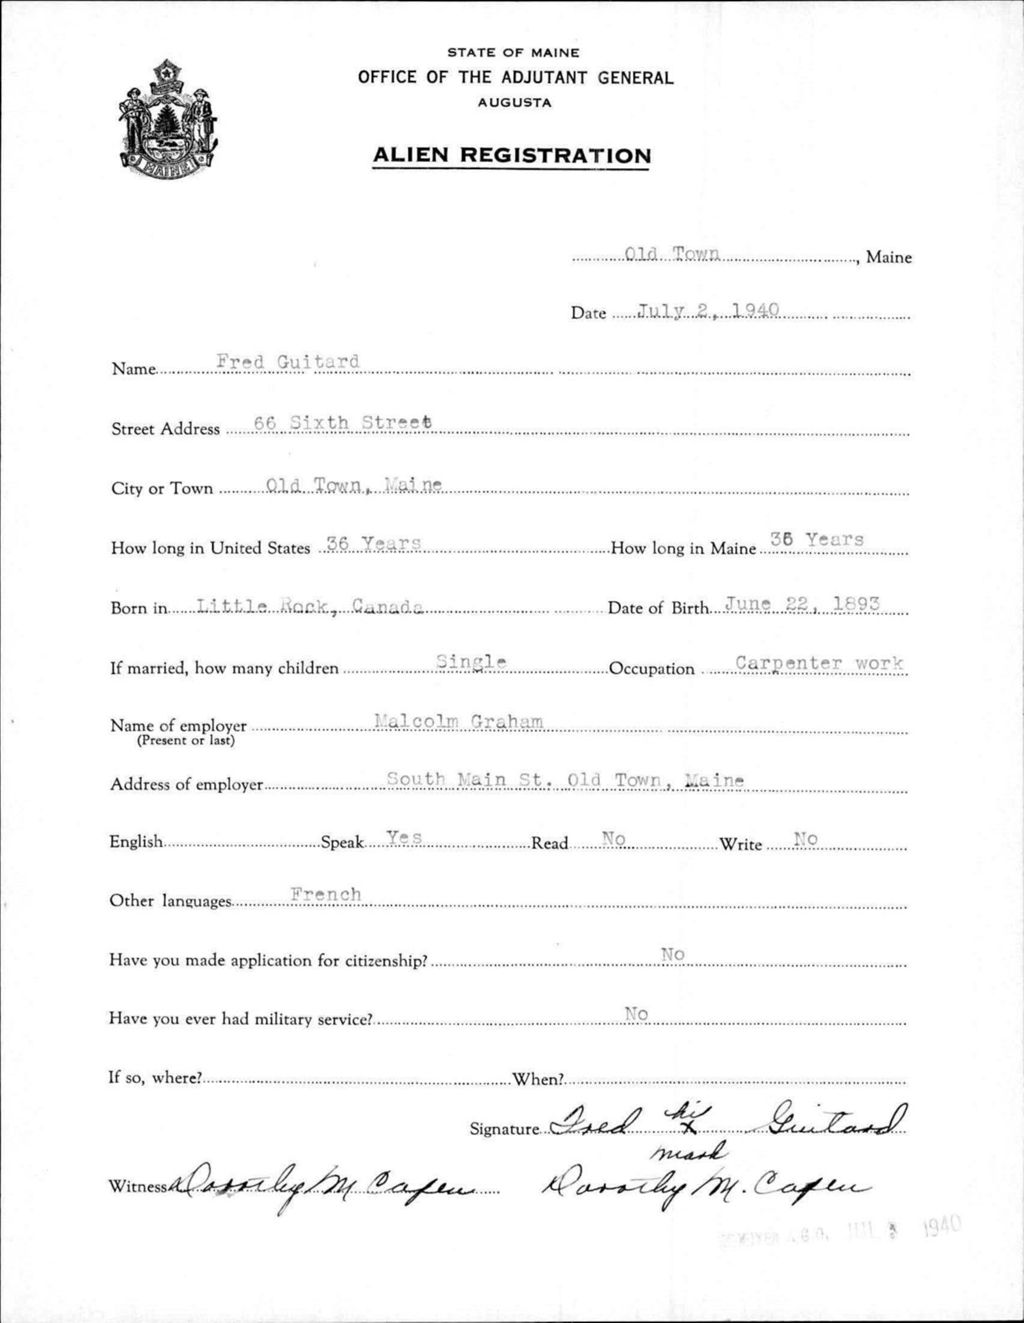 STATE OF MAINE
OFFICE OF THE ADJUTANT GENERAL
AUGUSTA
ALIEN REGISTRATION
MAINE
Old Town, Maine
Date July 2, 1940
Name Fred Guitard
Street Address 66 Sixth Street
City or Town Old Town, Maine
How long in United States 36 Years How long in Maine 36 Years
Born in Little Rock, Canada Date of Birth June 22, 1893
If married, how many children Single Occupation Carpenter work
Name of employer Malcolm Graham
(Present or last)
Address of employer South Main St. Old Town, Maine
English Speak Yes Read No Write No
Other languages French
Have you made application for citizenship? No
Have you ever had military service? No
If so, where? When?
Signature Fred his X Guitard
mark
Witness Dorothy M Capen Dorothy M. Capen
A.G.O. JUL 1940